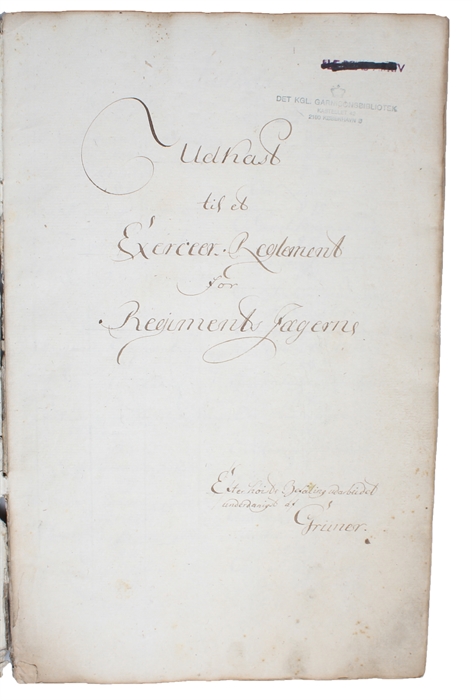 DET KGL. GARNISONSBIBLIOTEK
2100 KØBENHAVN Ø
Udkast
til et
Exerceer-Reglement
for
Regiments Jægerne
Efter höieste Befaling udarbeidet
underdanigst af
Grüner.